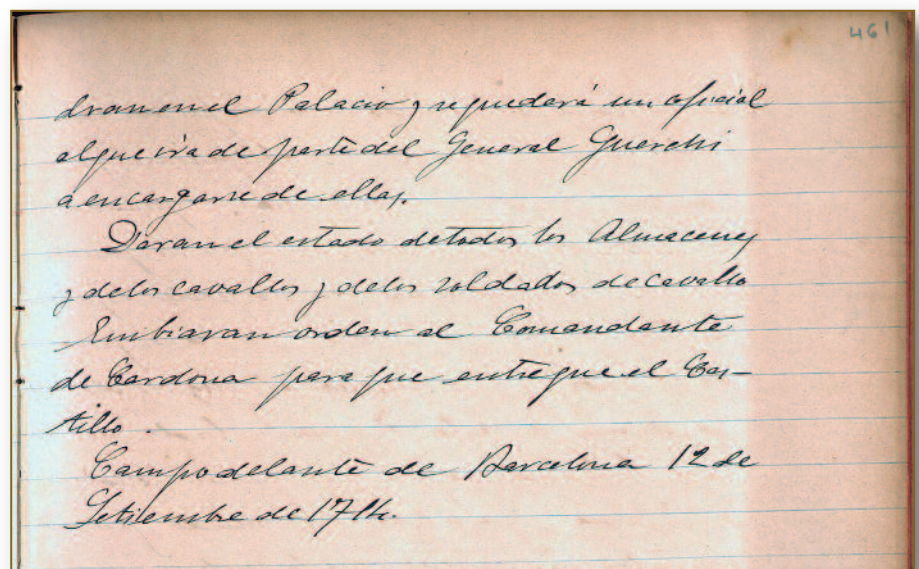 461
dran en el Palacio y se quedará un oficial
al que irá de parte del General Guerchi
a encargarse de ellas.
Daran el estado de todos los Almacenes
y de los cavallos y de los soldados de cavallo
Embiaran orden al Comandante
de Cardona para que entregue el Cas-
tillo.
Campo delante de Barcelona 12 de
Setiembre de 1714.